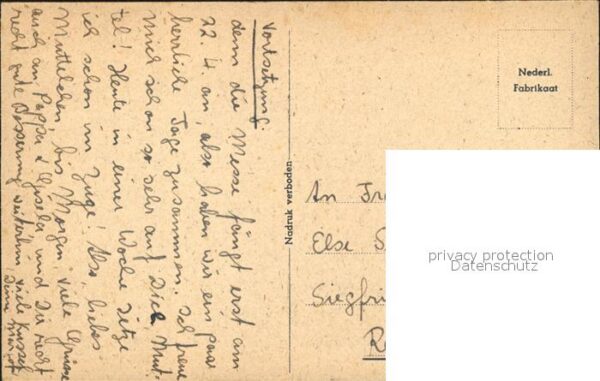 Vortsetzung.
denn die Messe fängt erst am
22. 4. an, also haben wir ein paar
herrliche Tage zusammen. Ich freue
mich schon so sehr auf Dich Mut-
tel! Heute in einer Woche sitze
ich schon im Zuge! Also, liebes
Muttelchen, bis Morgen, viele Grüsse
auch an Pappi & Gisela und Dir recht
recht gute Besserung weiterhin, viele Küsse
Deine
Nadruk verboden
Nederl.
Fabrikaat
An Fr
Else S
Siegfri
R
privacy protection
Datenschutz